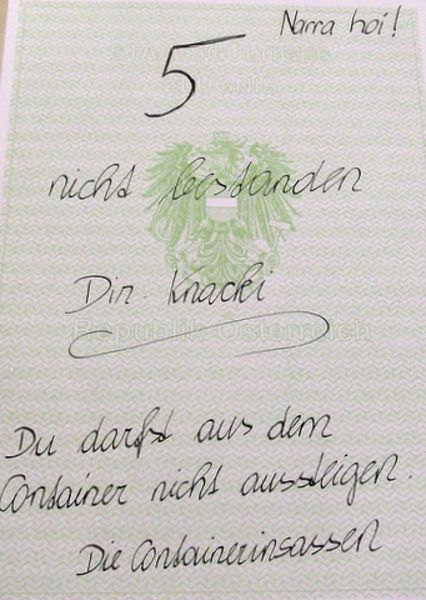 Narra hoi!
STAATSGÜLTIGES
ZEUGNIS
5
nicht bestanden
Dir. Knacki
Republik Österreich
Du darfst aus dem
Container nicht aussteigen.
Die Containerinsassen